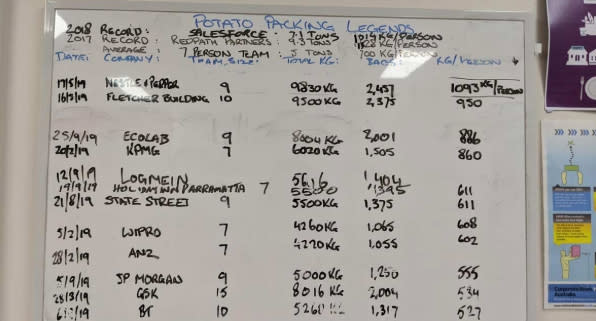 POTATO PACKING LEGENDS
2018 RECORD: SALESFORCE: 7.1 TONS 1014 KG/PERSON
2017 RECORD: REDPATH PARTNERS: 9.3 TONS KG/PERSON
AVERAGE: 7 PERSON TEAM: 5 TONS 700 KG/PERSON
DATE: COMPANY: TEAM SIZE: TOTAL KG: BAGS KG/PERSON
17/5/19 NESTLE & PEPPER 9 9830 KG 2,457 1093 KG/PERSON
16/5/19 FLETCHER BUILDING 10 9500 KG 2,375 950
25/9/19 ECOLAB 9 8004 KG 2,001 886
20/2/19 KPMG 7 6020 KG 1,505 860
12/9/19 LOGMEIN 5616 1,404
19/9/19 HOLIDAY INN PARRAMATTA 7 1395 611
21/8/19 STATE STREET 9 5500KG 1,375 611
5/2/19 WIPRO 7 4260KG 1,065 608
28/2/19 ANZ 7 4220 KG 1,055 602
5/9/19 JP MORGAN 9 5000 KG 1,250 555
28/3/19 GSK 15 8016 KG 2,004 534
BT 10 5260 KG 1,317 527